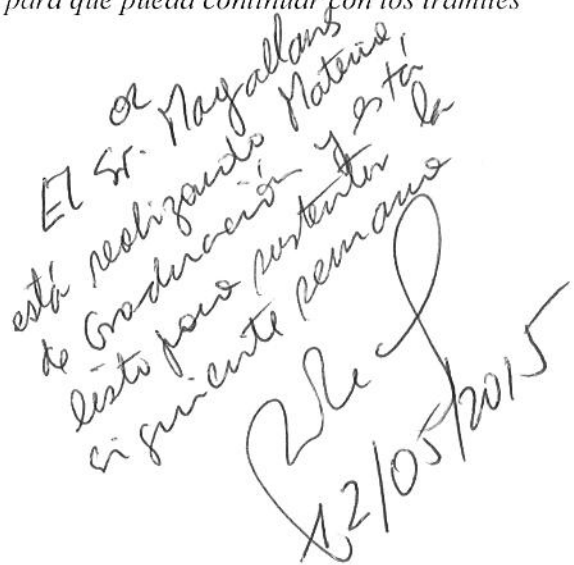 para que pueda continuar con los trámites
OK
El Sr. Magallans
está realizando Materia
de Graduación y está
listo para sustentar la
siguiente semana
12/05/2015